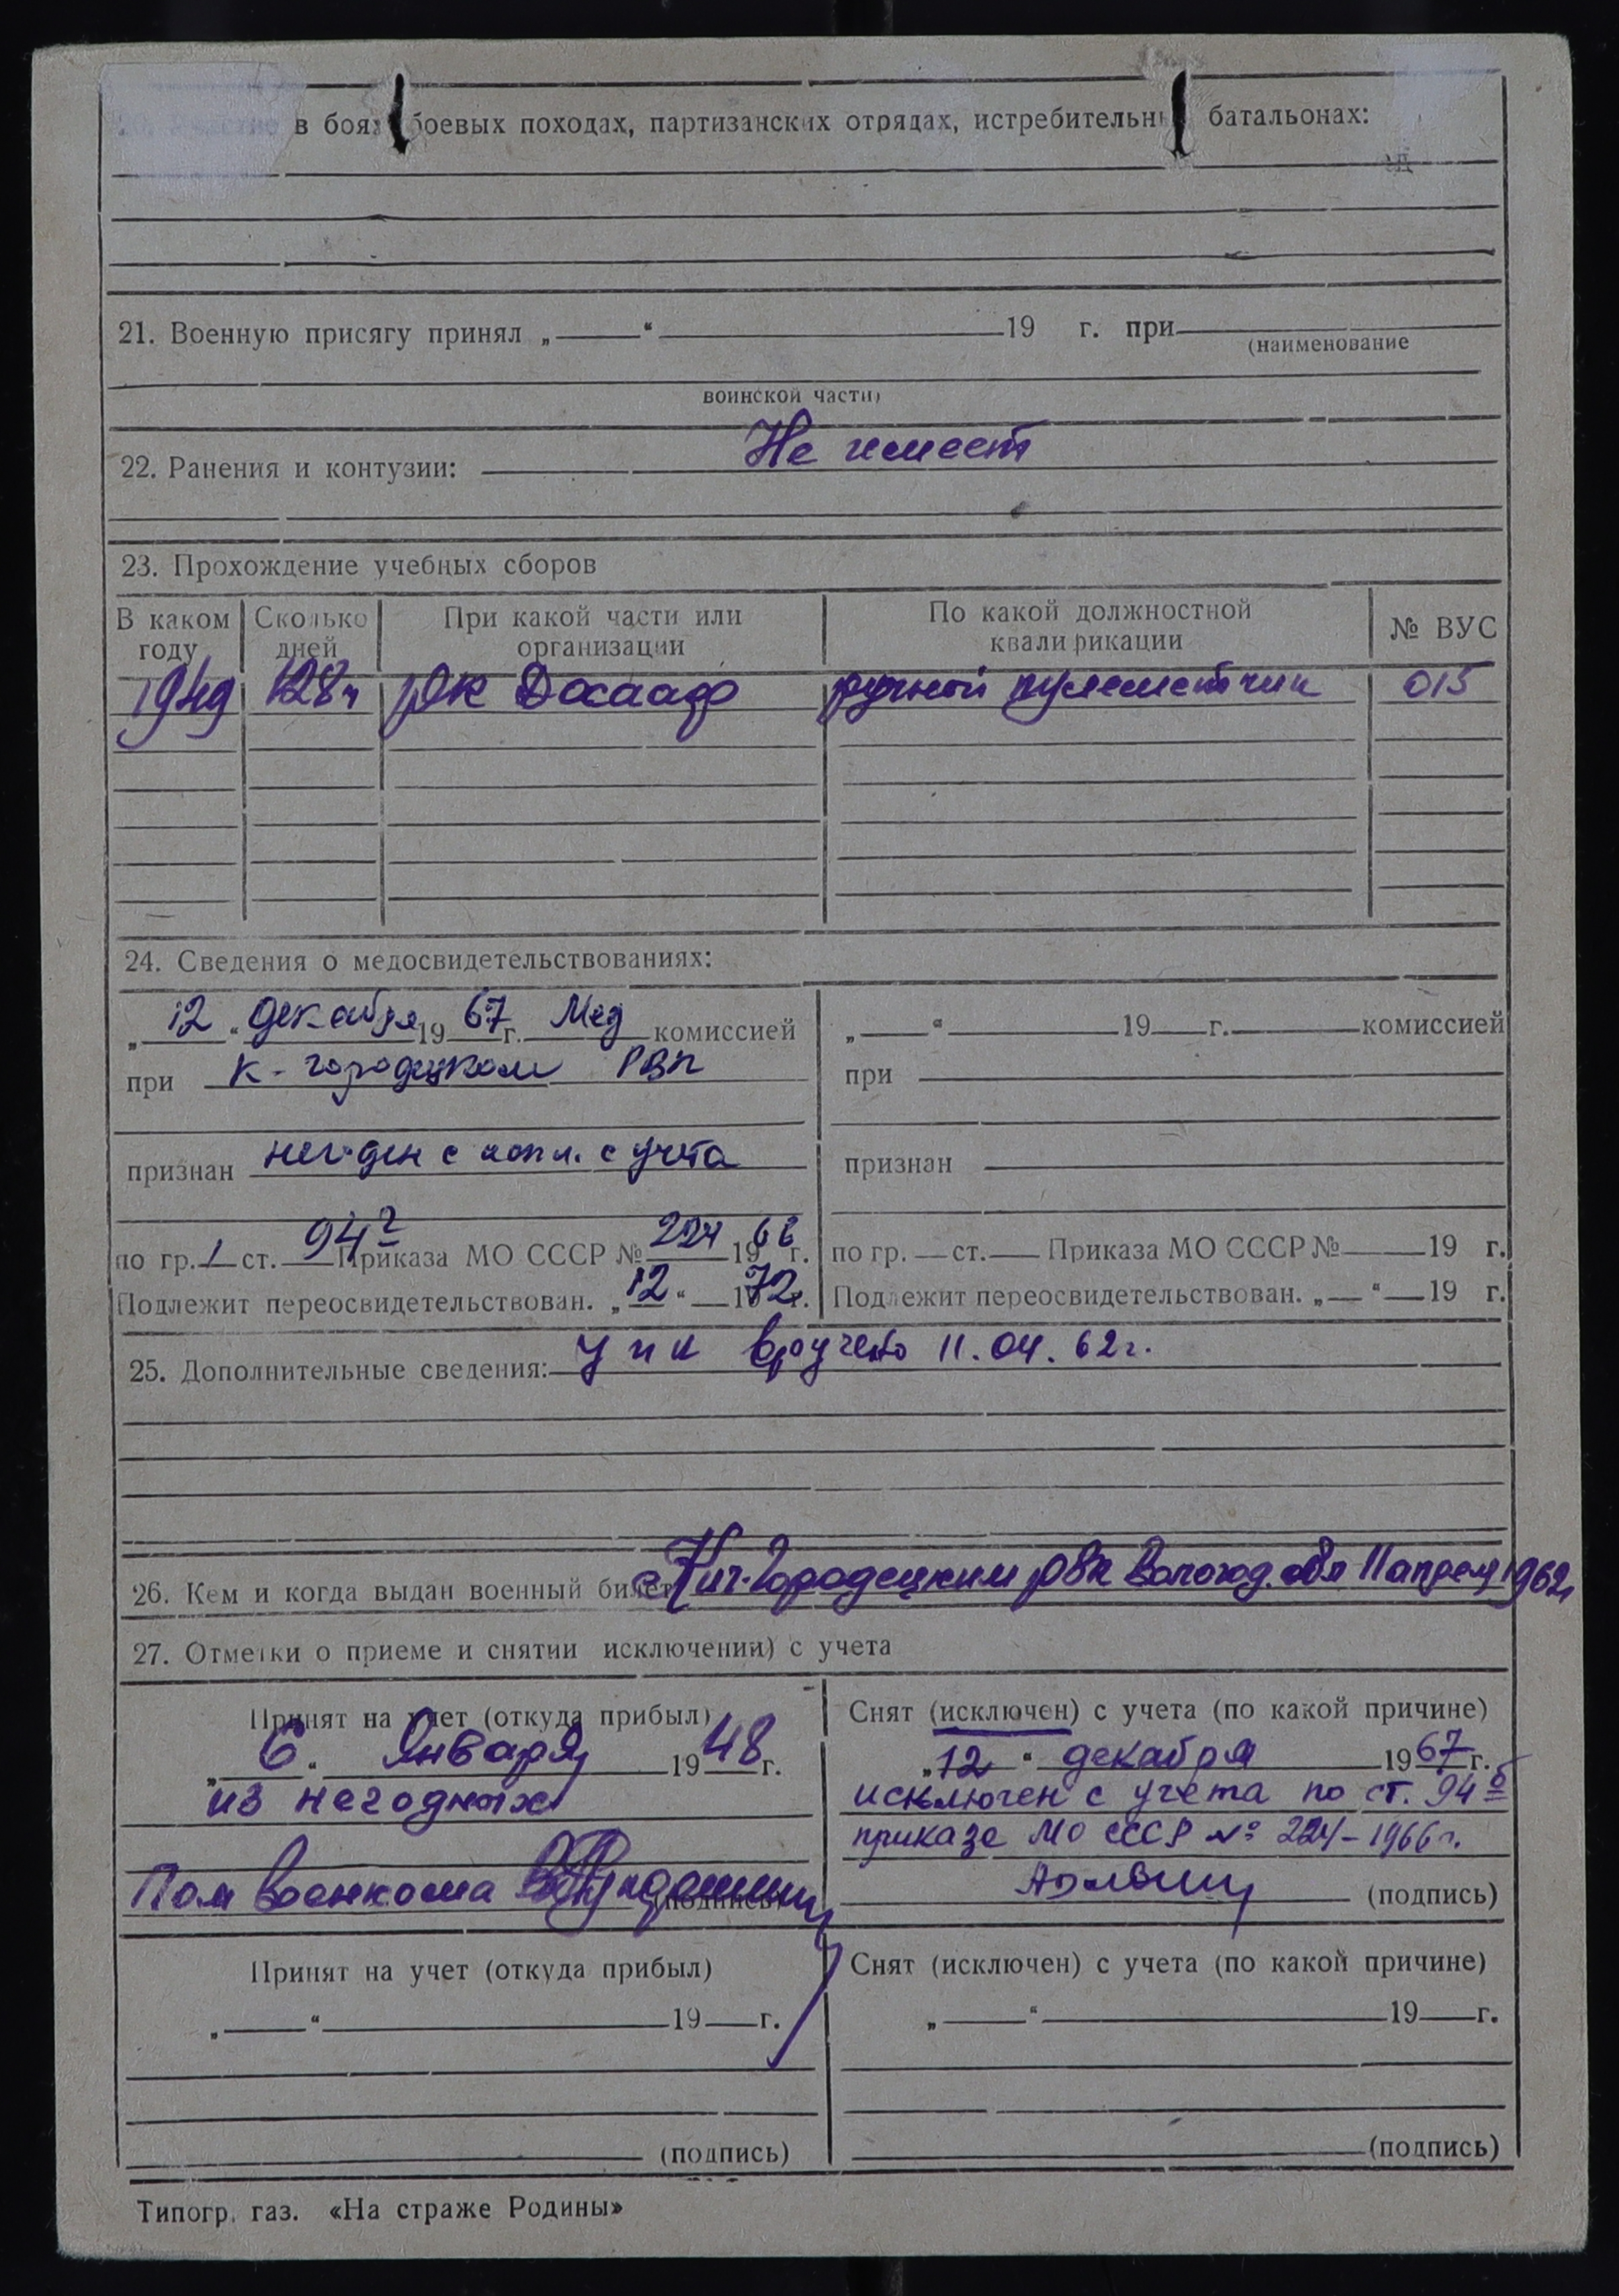 в боях, боевых походах, партизанских отрядах, истребительных батальонах:
21. Военную присягу принял „ “ 19 г. при
(наименование
воинской части)
22. Ранения и контузии: Не имеет
23. Прохождение учебных сборов
В каком году Сколько дней При какой части или организации По какой должностной квалификации № ВУС
1949 128ч РК Досааф ручной пулеметчик 015
24. Сведения о медосвидетельствованиях:
„12“ декабря 1967 г. Мед комиссией
при К-городецком РВК
признан негоден с искл. с учета
по гр. 1 ст. 94 Приказа МО СССР № 224 1966 г.
Подлежит переосвидетельствован. „12“ 1972 г.
„ “ 19 г. комиссией
при
признан
по гр. ст. Приказа МО СССР № 19 г.
Подлежит переосвидетельствован. „ “ 19 г.
25. Дополнительные сведения: УПК вручено 11.04.62г.
26. Кем и когда выдан военный билет Кич-Городецким рвк Вологод. обл 11 апреля 1962г
27. Отметки о приеме и снятии исключении) с учета
Принят на учет (откуда прибыл)
„6“ Января 1948 г.
из негодных
Пом Военкома
(подпись)
Снят (исключен) с учета (по какой причине)
„12“ декабря 1967 г.
исключен с учета по ст. 94б
приказа МО СССР № 224-1966г.
(подпись)
Принят на учет (откуда прибыл)
„ “ 19 г.
(подпись)
Снят (исключен) с учета (по какой причине)
„ “ 19 г.
(подпись)
Типогр. газ. «На страже Родины»